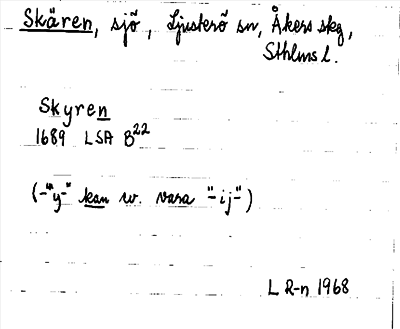 Skären, sjö, Ljusterö sn, Åkers skg,
Sthlms l.
Skyren
1689 LSA B22
(-"y-" kan ev. vara "-ij-")
L R-n 1968